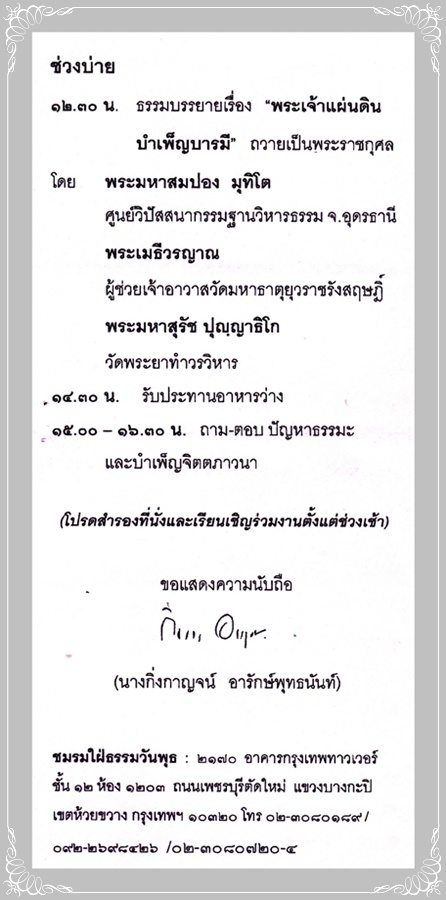 ช่วงบ่าย
๑๒.๓๐ น. ธรรมบรรยายเรื่อง "พระเจ้าแผ่นดิน
บำเพ็ญบารมี" ถวายเป็นพระราชกุศล
โดย พระมหาสมปอง มุทิโต
ศูนย์วิปัสสนากรรมฐานวิหารธรรม จ.อุดรธานี
พระเมธีวรญาณ
ผู้ช่วยเจ้าอาวาสวัดมหาธาตุยุวราชรังสฤษฎิ์
พระมหาสุรัช ปุญฺญาธิโก
วัดพระยาทำวรวิหาร
๑๔.๓๐ น. รับประทานอาหารว่าง
๑๕.๐๐ – ๑๖.๓๐ น. ถาม-ตอบ ปัญหาธรรมะ
และบำเพ็ญจิตตภาวนา
(โปรดสำรองที่นั่งและเรียนเชิญร่วมงานตั้งแต่ช่วงเช้า)
ขอแสดงความนับถือ
(นางกิ่งกาญจน์ อารักษ์พุทธนันท์)
ชมรมใฝ่ธรรมวันพุธ : ๒๑๗๐ อาคารกรุงเทพทาวเวอร์
ชั้น ๑๒ ห้อง ๑๒๐๓ ถนนเพชรบุรีตัดใหม่ แขวงบางกะปิ
เขตห้วยขวาง กรุงเทพฯ ๑๐๓๒๐ โทร ๐๒-๓๐๘๐๑๘๙ /
๐๙๒-๒๖๙๘๔๒๖ /๐๒-๓๐๘๐๗๒๐-๔